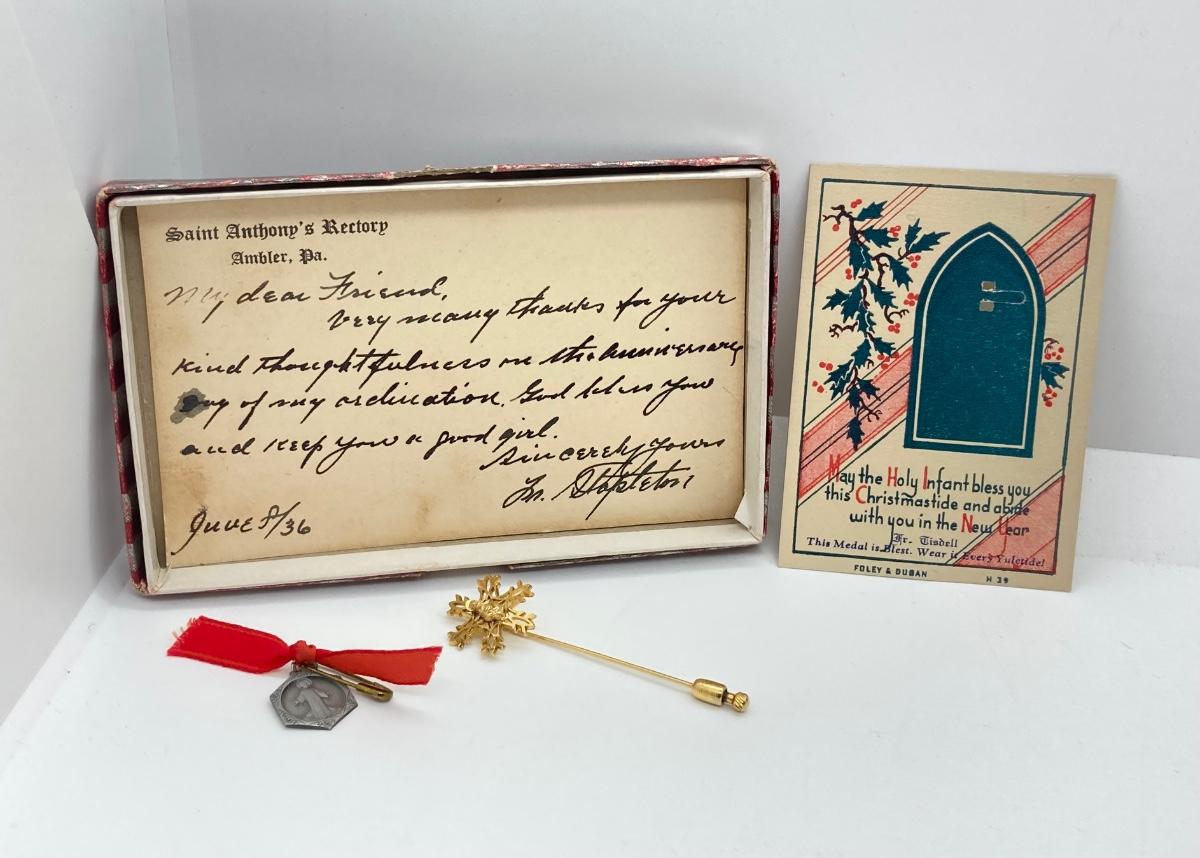 Saint Anthony's Rectory
Ambler, Pa.
My dear Friend,
Very many thanks for your
kind thoughtfulness on the Anniversary
Day of my ordination. God bless you
and keep you a good girl.
Sincerely yours
Stapleton
June 8/36
May the Holy Infant bless you
this Christmastide and abide
with you in the New Year
Fr. Tisdell
This Medal is Blest. Wear it Every Yuletide!
FOLEY & DUGAN
H 39